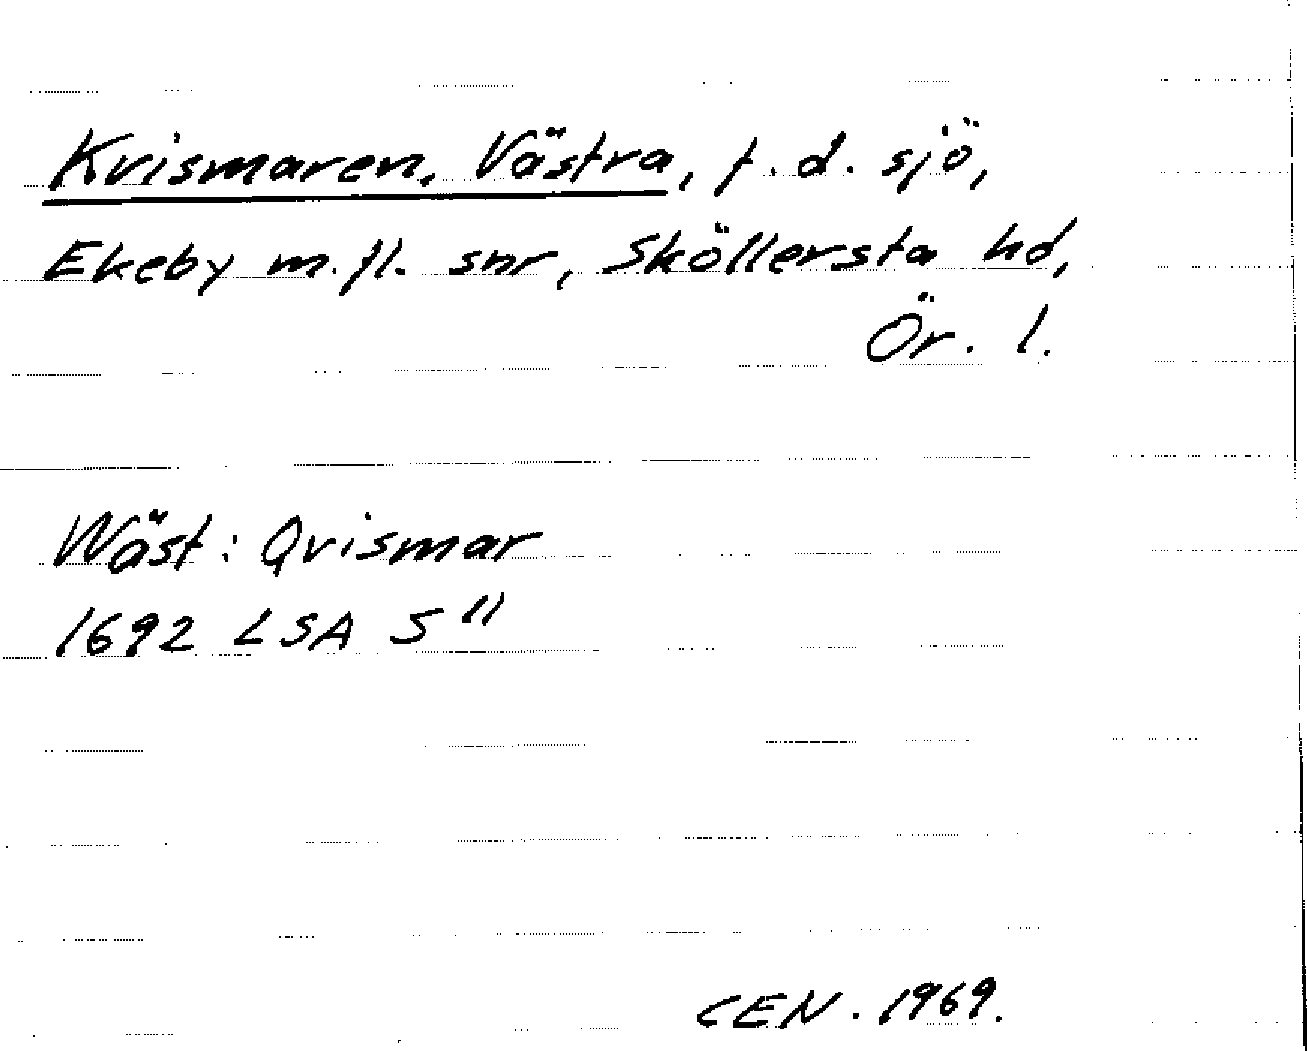 Kvismaren, Västra, f.d. sjö,
Ekeby m.fl. snr, Sköllersta hd,
Ör. l.
Wäst: Qvismar
1692 LSA S 11
CEN. 1969.